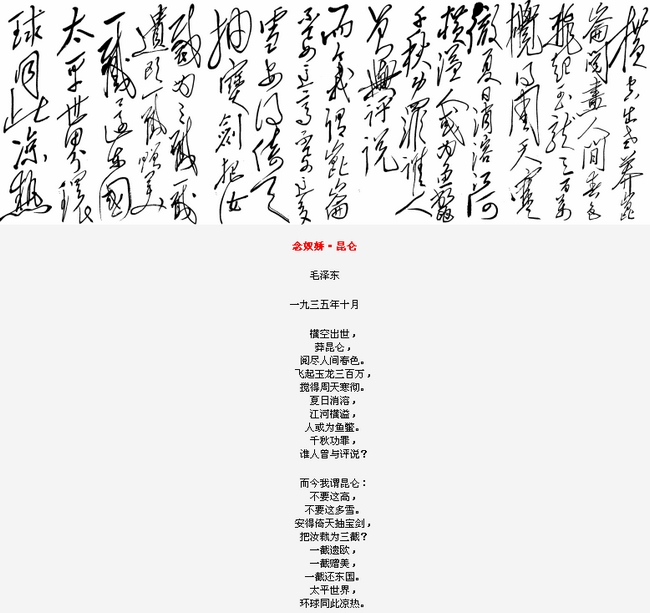 橫空出世莽崑
崙閱盡人間春色
飛起玉龍三百萬
攪得周天寒
徹夏日消溶江河
橫溢人或為魚鱉
千秋功罪誰人
曾與評說
而今我謂崑崙
不要這高不要這多
雪安得倚天
抽寶劍把汝
裁為三截一截
遺歐一截贈美
一截還東國
太平世界環
球同此涼熱
念奴娇·昆仑
毛泽东
一九三五年十月
横空出世，
莽昆仑，
阅尽人间春色。
飞起玉龙三百万，
搅得周天寒彻。
夏日消溶，
江河横溢，
人或为鱼鳖。
千秋功罪，
谁人曾与评说？
而今我谓昆仑：
不要这高，
不要这多雪。
安得倚天抽宝剑，
把汝裁为三截？
一截遗欧，
一截赠美，
一截还东国。
太平世界，
环球同此凉热。